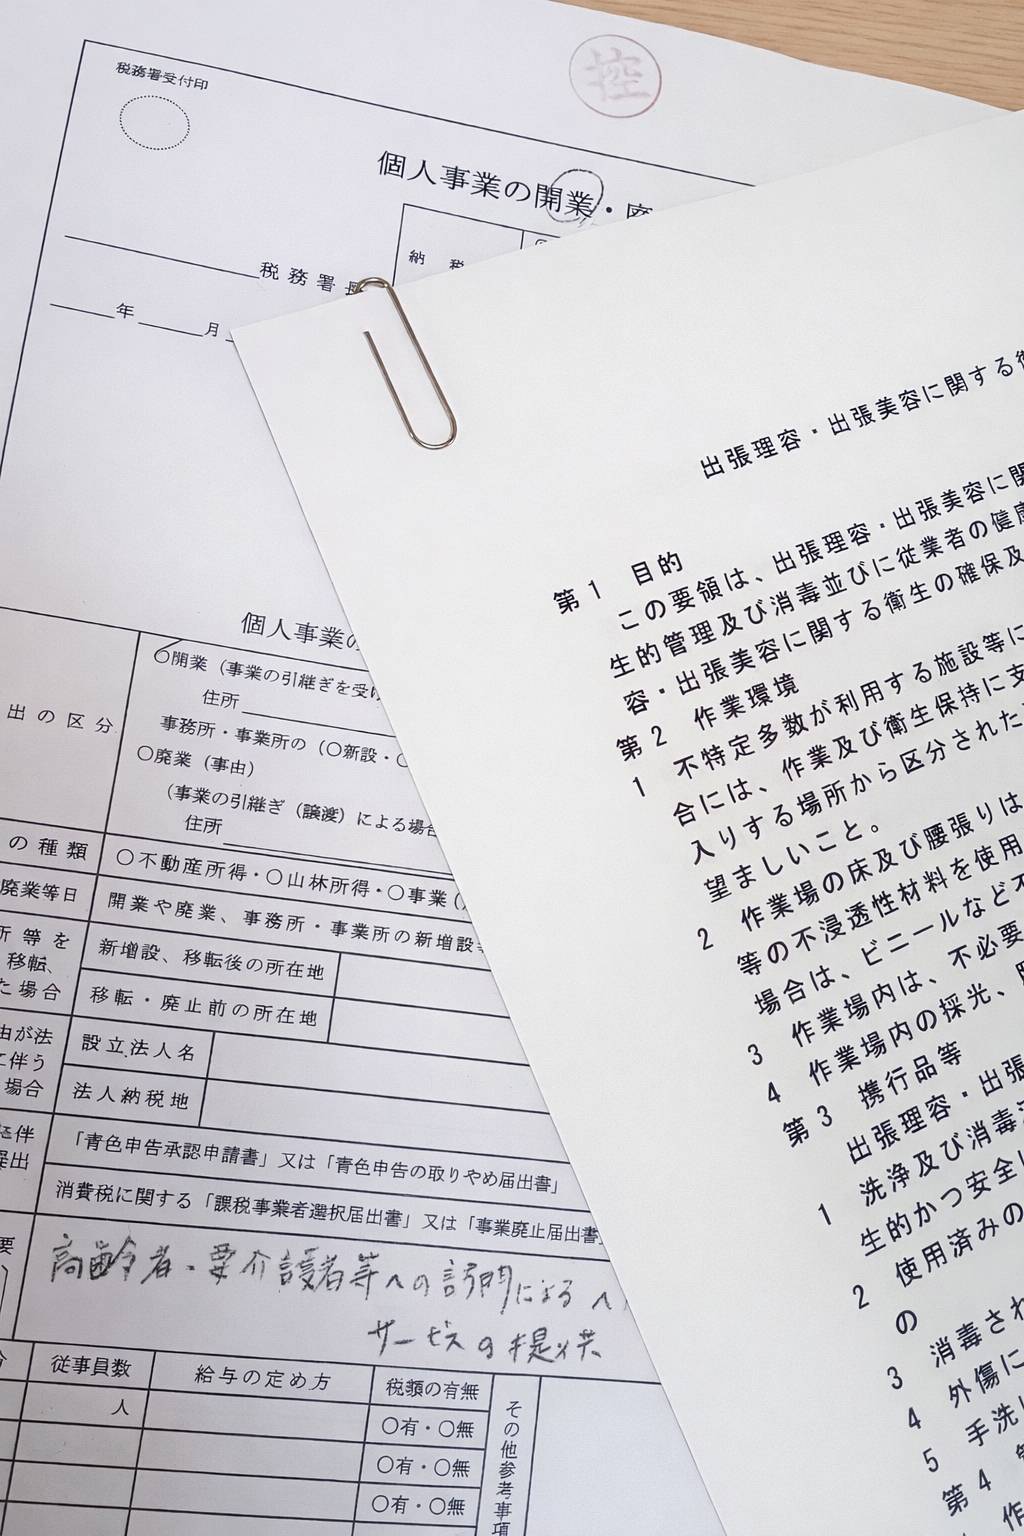 控
税務署受付印
個人事業の開業・廃
納 税
税務署長
年 月
個人事業の
出の区分
○開業（事業の引継ぎを受け
住所
事務所・事業所の（○新設・○
○廃業（事由）
（事業の引継ぎ（譲渡）による場合
住所
の種類
○不動産所得・○山林所得・○事業（
廃業等日
開業や廃業、事務所・事業所の新増設等
所等を
移転、
た場合
新増設、移転後の所在地
移転・廃止前の所在地
由が法
に伴う
場合
設立法人名
法人納税地
伴
提出
「青色申告承認申請書」又は「青色申告の取りやめ届出書」
消費税に関する「課税事業者選択届出書」又は「事業廃止届出書」
要
高齢者・要介護者等への訪問による
サービスの提供
従事員数
給与の定め方
税額の有無
人
○有・○無
○有・○無
○有・○無
その他参考事項
出張理容・出張美容に関する衛
第1 目的
この要領は、出張理容・出張美容に関
生的管理及び消毒並びに従業者の健康
容・出張美容に関する衛生の確保及
第2 作業環境
1 不特定多数が利用する施設等に
合には、作業及び衛生保持に支
入りする場所から区分された
望ましいこと。
2 作業場の床及び腰張りは
等の不浸透性材料を使用
場合は、ビニールなど不
3 作業場内は、不必要
4 作業場内の採光、
第3 携行品等
出張理容・出張
洗浄及び消毒
1 生的かつ安全に
使用済みの
2 の
3 消毒され
4 外傷に
5 手洗い
第4
作